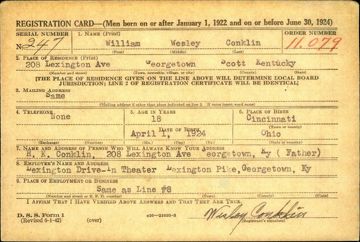 REGISTRATION CARD—(Men born on or after January 1, 1922 and on or before June 30, 1924)
SERIAL NUMBER 1. NAME (Print) ORDER NUMBER
N 247 William Wesley Conklin 11,079
2. PLACE OF RESIDENCE (Print)
208 Lexington Ave Georgetown Scott Kentucky
[THE PLACE OF RESIDENCE GIVEN ON THE LINE ABOVE WILL DETERMINE LOCAL BOARD
JURISDICTION; LINE 2 OF REGISTRATION CERTIFICATE WILL BE IDENTICAL]
3. MAILING ADDRESS
Same
4. TELEPHONE 5. AGE IN YEARS 6. PLACE OF BIRTH
None 18 Cincinnati
DATE OF BIRTH
April 1, 1924 Ohio
7. NAME AND ADDRESS OF PERSON WHO WILL ALWAYS KNOW YOUR ADDRESS
Conklin, 208 Lexington Ave eorgetown, Ky ( Father)
8. EMPLOYER'S NAME AND ADDRESS
Lexington Drive-In Theater Lexington Pike, Georgetown, Ky
9. PLACE OF EMPLOYMENT OR BUSINESS
Same as Line #8
I AFFIRM THAT I HAVE VERIFIED ABOVE ANSWERS AND THAT THEY ARE TRUE.
D. S. S. Form 1
(Revised 6-1-42) (over)
Wesley Conklin